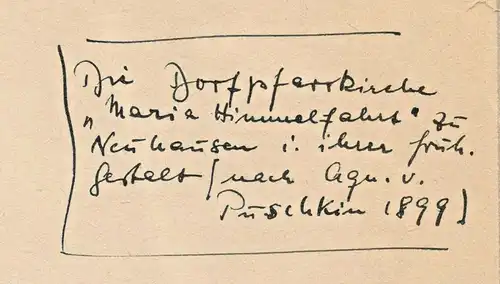 Die Dorfpfarrkirche
„Maria Himmelfahrt" zu
Neuhausen i. ihrer früh.
Gestalt (nach Aqu. v.
Puschkin 1899)